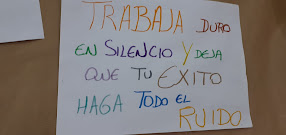 TRABAJA DURO
EN SILENCIO Y DEJA
QUE TU EXITO
HAGA TODO EL
RUIDO